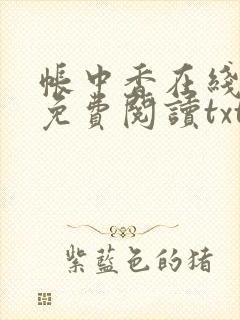 帳中香在綫
免費閱讀txt
紫藍色的猪